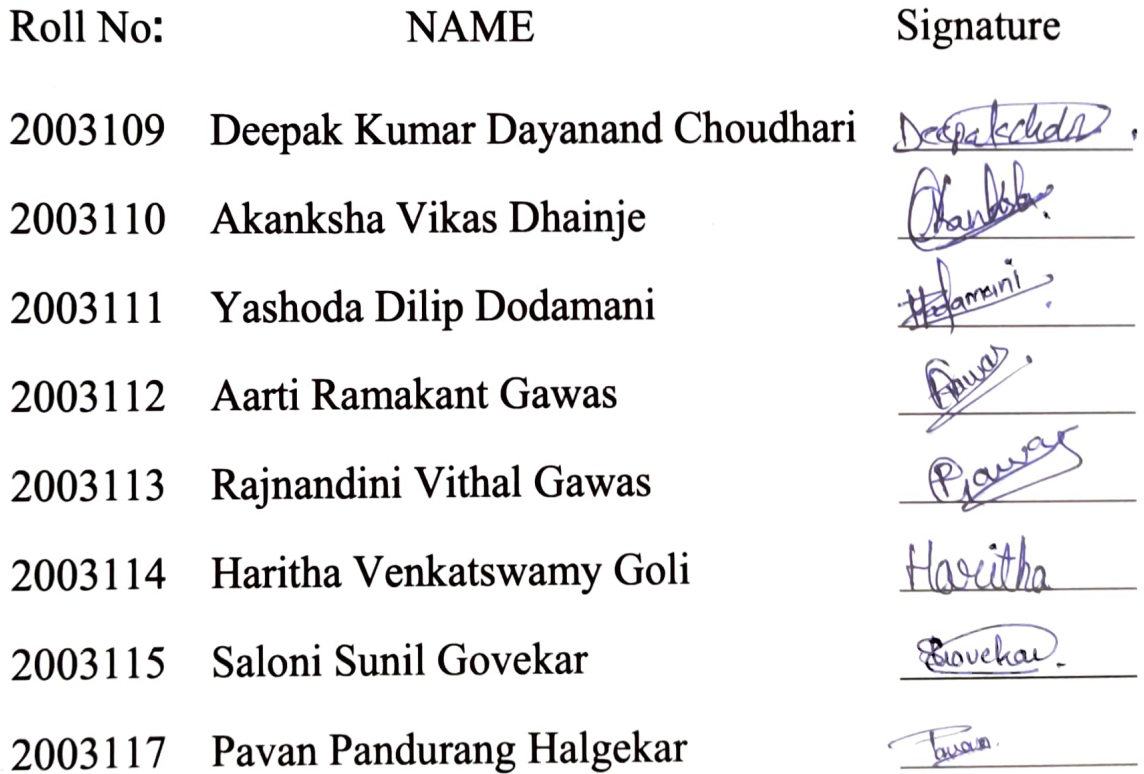 Roll No: NAME Signature
2003109 Deepak Kumar Dayanand Choudhari
2003110 Akanksha Vikas Dhainje
2003111 Yashoda Dilip Dodamani
2003112 Aarti Ramakant Gawas
2003113 Rajnandini Vithal Gawas
2003114 Haritha Venkatswamy Goli Haritha
2003115 Saloni Sunil Govekar
2003117 Pavan Pandurang Halgekar